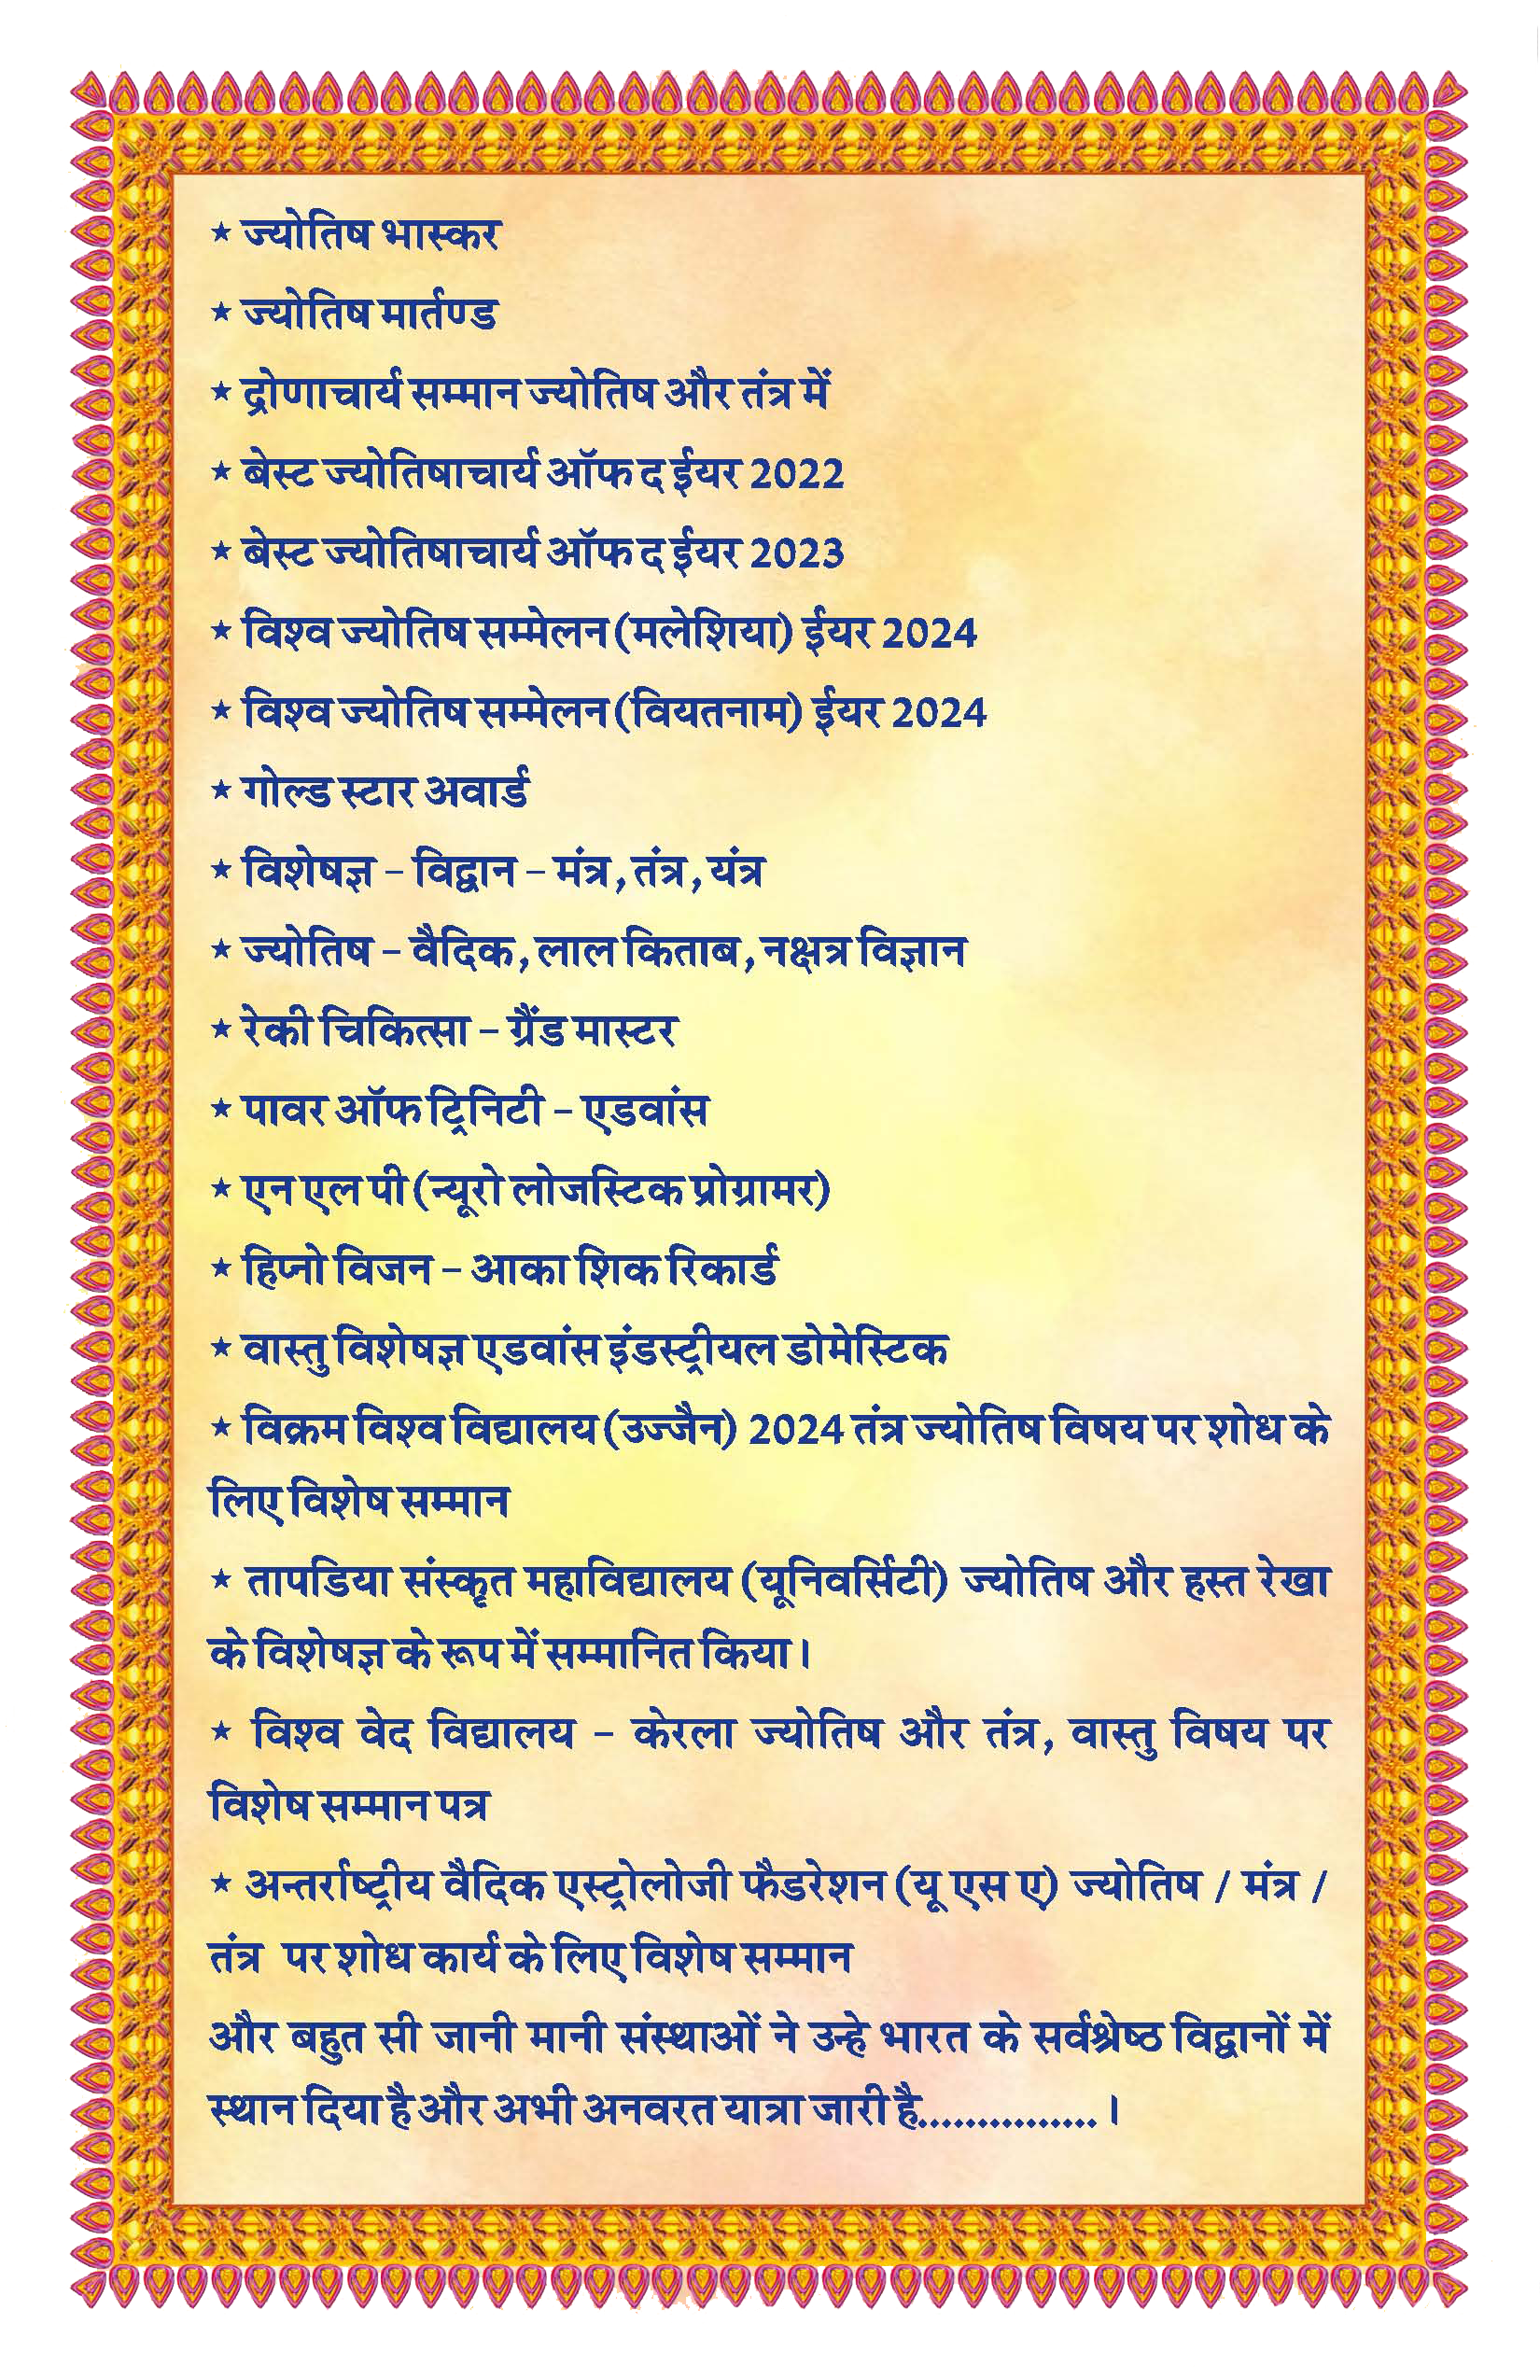 ★ ज्योतिष भास्कर
★ ज्योतिष मार्तण्ड
★ द्रोणाचार्य सम्मान ज्योतिष और तंत्र में
★ बेस्ट ज्योतिषाचार्य ऑफ द ईयर 2022
★ बेस्ट ज्योतिषाचार्य ऑफ द ईयर 2023
★ विश्व ज्योतिष सम्मेलन (मलेशिया) ईयर 2024
★ विश्व ज्योतिष सम्मेलन (वियतनाम) ईयर 2024
★ गोल्ड स्टार अवार्ड
★ विशेषज्ञ – विद्वान – मंत्र, तंत्र, यंत्र
★ ज्योतिष – वैदिक, लाल किताब, नक्षत्र विज्ञान
★ रेकी चिकित्सा – ग्रैंड मास्टर
★ पावर ऑफ ट्रिनिटी – एडवांस
★ एन एल पी (न्यूरो लोजस्टिक प्रोग्रामर)
★ हिप्नो विजन – आका शिक रिकार्ड
★ वास्तु विशेषज्ञ एडवांस इंडस्ट्रीयल डोमेस्टिक
★ विक्रम विश्व विद्यालय (उज्जैन) 2024 तंत्र ज्योतिष विषय पर शोध के
लिए विशेष सम्मान
★ तापडिया संस्कृत महाविद्यालय (यूनिवर्सिटी) ज्योतिष और हस्त रेखा
के विशेषज्ञ के रूप में सम्मानित किया।
★ विश्व वेद विद्यालय – केरला ज्योतिष और तंत्र, वास्तु विषय पर
विशेष सम्मान पत्र
★ अन्तर्राष्ट्रीय वैदिक एस्ट्रोलोजी फैडरेशन (यू एस ए) ज्योतिष / मंत्र /
तंत्र पर शोध कार्य के लिए विशेष सम्मान
और बहुत सी जानी मानी संस्थाओं ने उन्हे भारत के सर्वश्रेष्ठ विद्वानों में
स्थान दिया है और अभी अनवरत यात्रा जारी है...............।